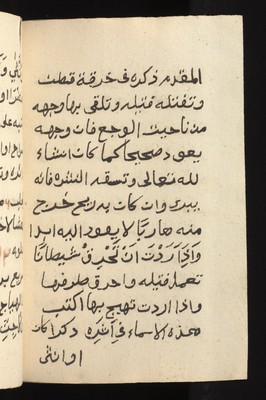 المقدم ذكره فى خرقة قطن
وتفتله فتيله وتلقى بها وجهه
من ناحيت الوجع فان وجهه
يعود صحيحا كما كان انشاء
لله تعالى وتسقه النشره فانه
يبرى وان كان به ريح خرج
منه هاربا لا يعود اليه ابدا
وَاِذَا اَرَدْتَ اَنْ تَحْرِقْ شيطانا
تعمل فتيله واحرق طرفها
واذا اردت تهيج بها اكتب
هذه الاسماء فى اثره ذكرا كان
او انثى